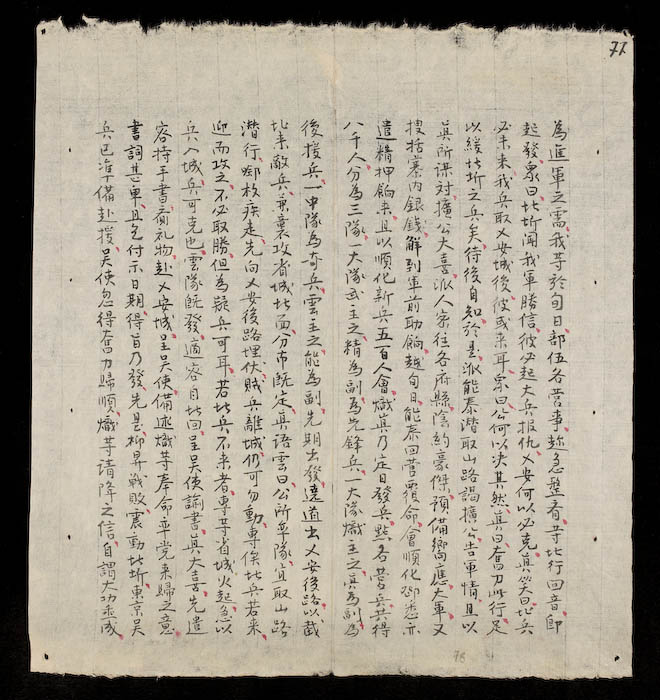 77
為進軍之需我等於旬日部伍各營事趂急整看等北行回音即
起發衆曰北圻聞我軍勝信彼必起大兵报仇乂安何以必克真笑曰北兵
必未来我兵取乂安城後彼或来耳衆曰公何以决其然真曰奮力此行足
以緩北圻之兵矣待後自知於是派能泰潜取山路謁擴公告軍情且以
眞所谋对擴公大喜派人密往各府縣陰約豪傑預備嚮應大軍又
搜括寨内銀錢解到軍前助餉越旬日能泰回營覆命會順化
遣精押餉来且以順化新兵五百人會熾真乃定日發兵點各營兵共得
八千人分為三隊一大隊武主之精為副為先鋒兵一大隊熾主之寅為副為
後援兵一中隊為奇兵雲主之能為副先期出發遶道出乂安後路以截
北来敵兵兼裏攻省城北面分布既定真语雲曰公所率隊宜取山路
潜行啣枚疾走先向乂安後路埋伏賊兵離城仍可勿動専俟北兵若来
迎而攻之不必取勝但為疑兵可耳若北兵不来者専等省城火起急以
兵入城兵可克也雲隊旣發適容自北回呈吴使諭書真大喜先遣
容持手書賫礼物赴乂安城呈吴使備述熾等奉命率党来歸之意
書詞甚卑且乞付示日期得旨乃發先是柳昇戰敗震動北圻東京吴
兵已準備赴援吴使忽得奮力歸順熾等请降之信自謂大功垂成
78